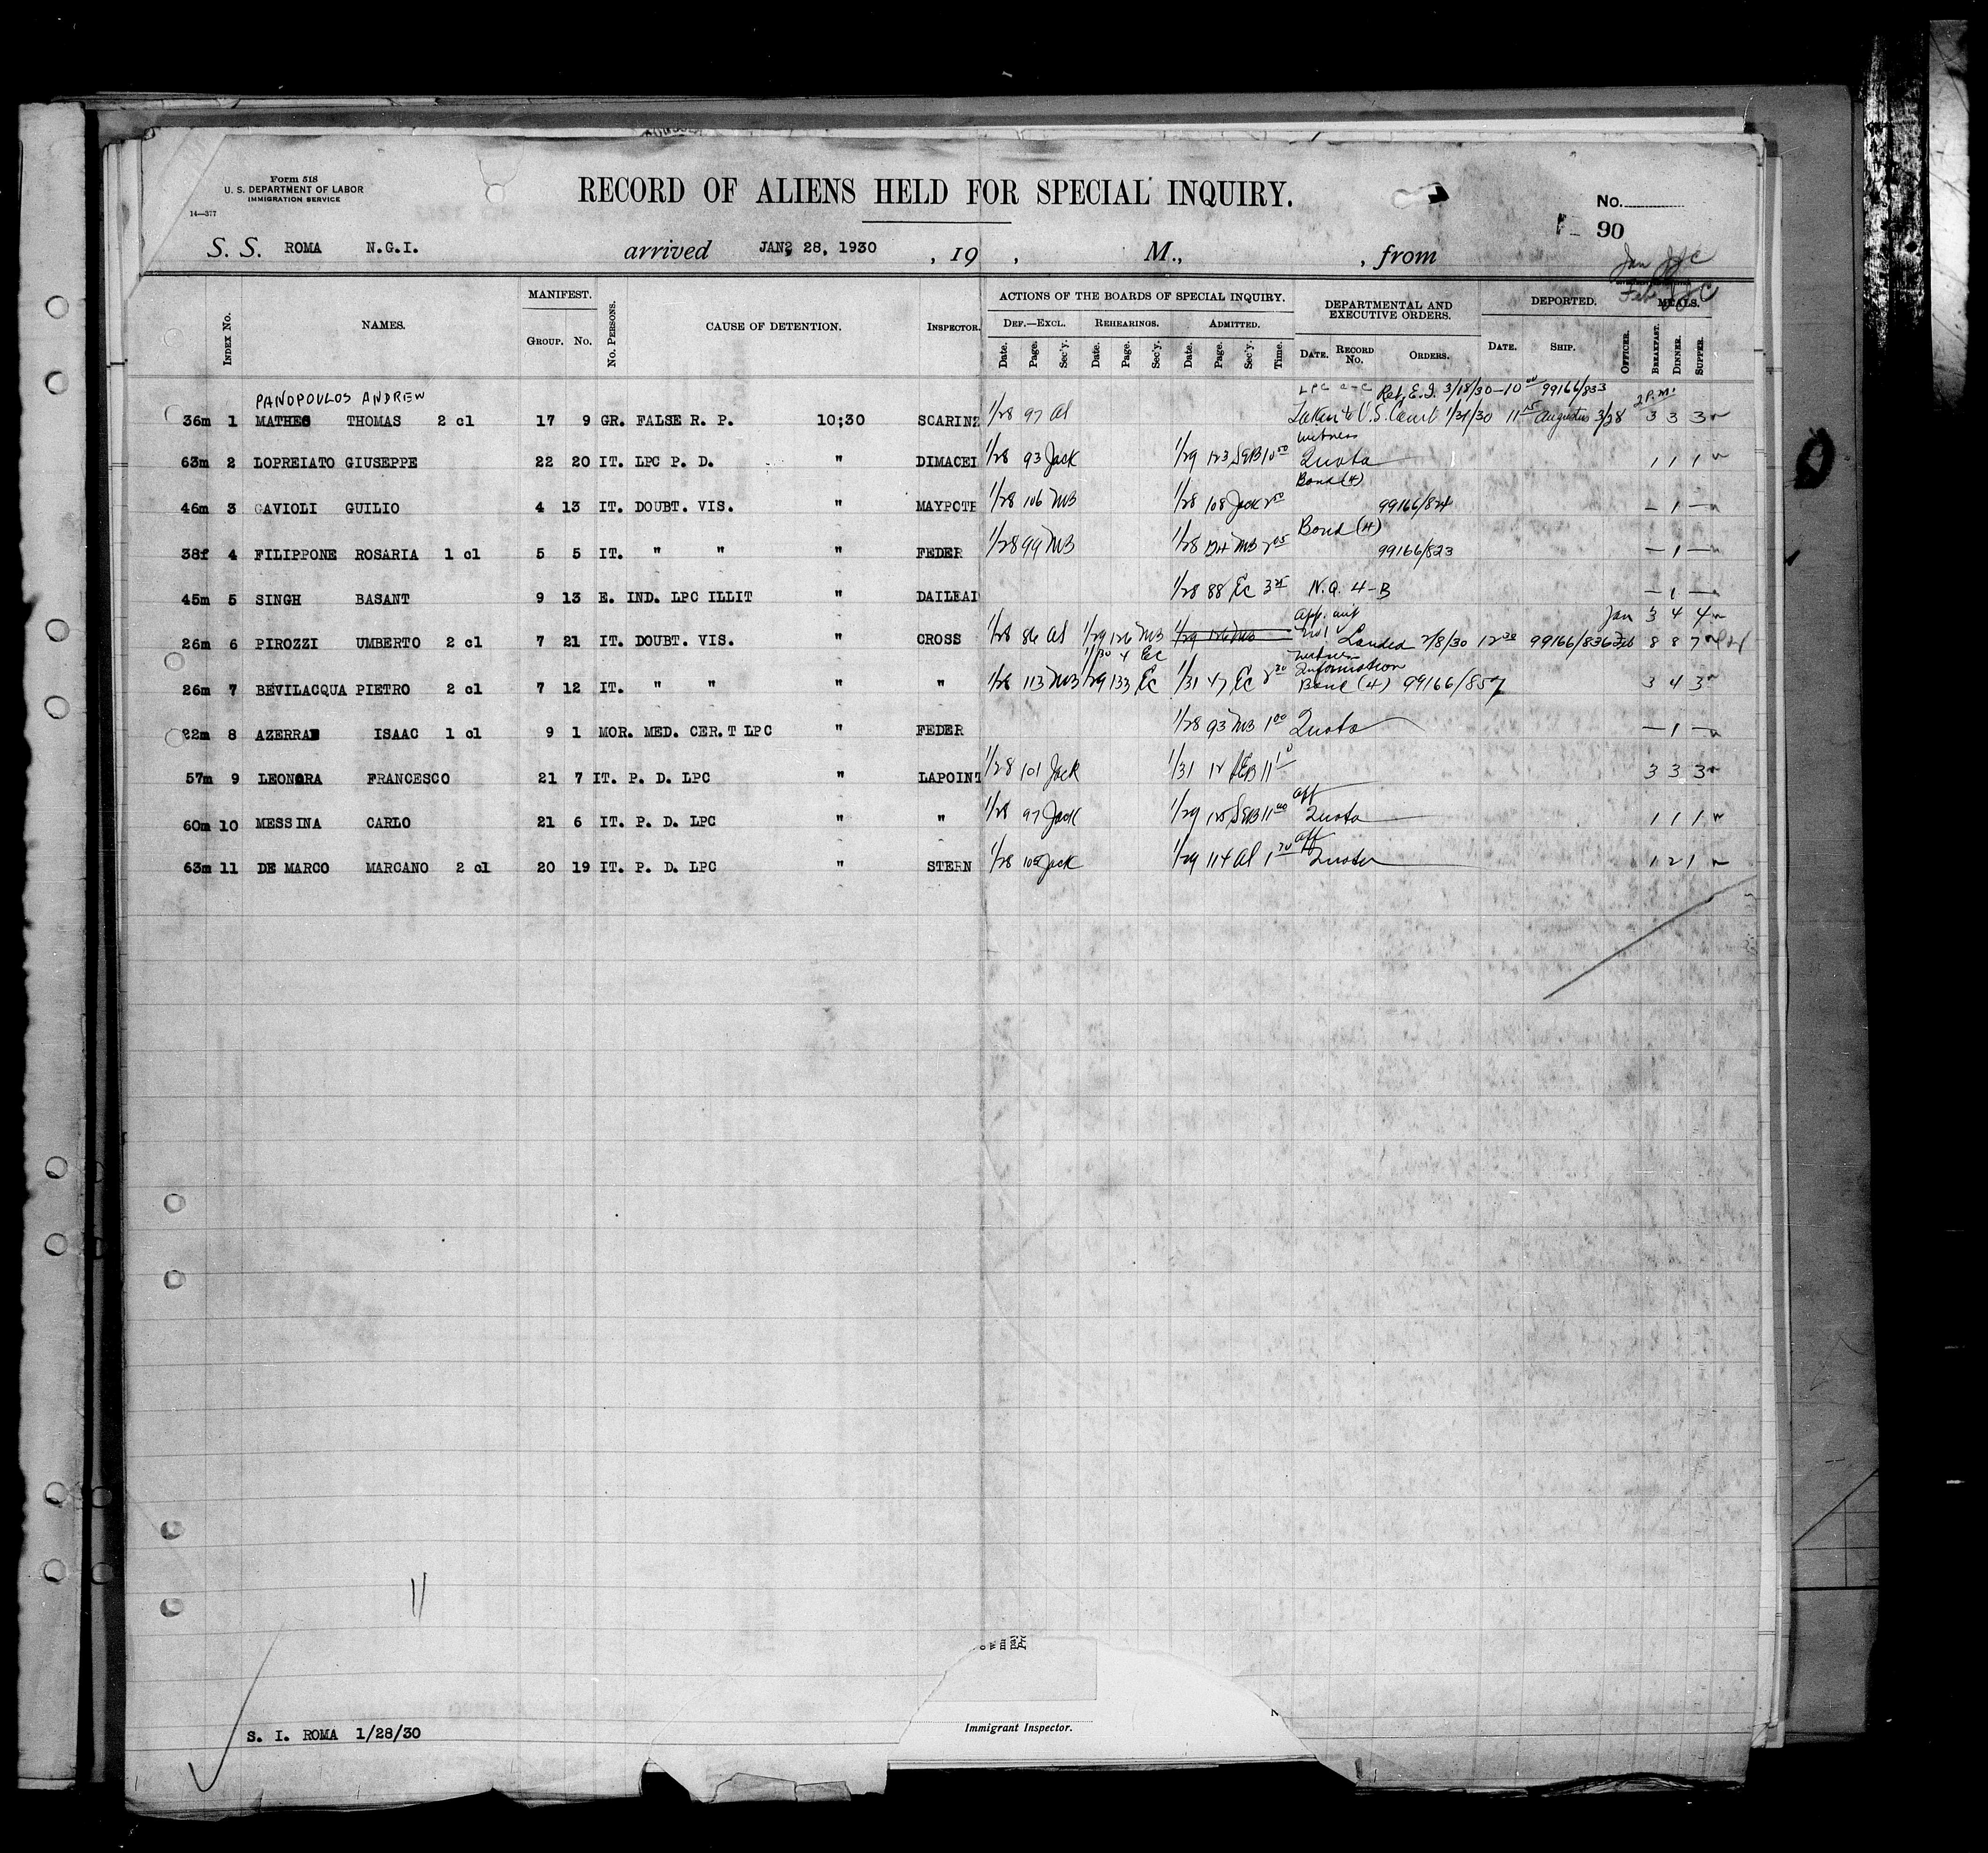 Form 518
U. S. DEPARTMENT OF LABOR
IMMIGRATION SERVICE
14—377
RECORD OF ALIENS HELD FOR SPECIAL INQUIRY.
No.
90
S. S. ROMA N.G.I. arrived JAN, 28, 1930 , 19 , M., , from
Jan
Feb
INDEX No. NAMES. MANIFEST. GROUP. No. No. PERSONS. CAUSE OF DETENTION. INSPECTOR. ACTIONS OF THE BOARDS OF SPECIAL INQUIRY. DEF.—EXCL. REHEARINGS. ADMITTED. DEPARTMENTAL AND EXECUTIVE ORDERS. DEPORTED. MEALS.
Date. Page. Sec'y. Date. Page. Sec'y. Date. Page. Sec'y. Time. DATE. RECORD No. ORDERS. DATE. SHIP. OFFICER. BREAKFAST. DINNER. SUPPER.
PANOPOULOS ANDREW LPC Ret. E.I. 3/18/30—10 00 99166/833 2 P.M.
36m 1 MATHEO THOMAS 2 cl 17 9 GR. FALSE R. P. 10;30 SCARINZ 1/28 97 al Taken to U.S. Court 1/31/30 11 25 Augustus 3/28 3 3 3
witness
63m 2 LOPREIATO GIUSEPPE 22 20 IT. LPC P. D. " DIMACEI 1/28 93 Jack 1/29 123 SEB 10 50 Quota 1 1 1
Bond (4)
46m 3 GAVIOLI GUILIO 4 13 IT. DOUBT. VIS. " MAYPOTE 1/28 106 MB 1/28 108 Jack 2 50 99166/824 — 1 —
Bond (4)
38f 4 FILIPPONE ROSARIA 1 cl 5 5 IT. " " " FEDER 1/28 99 MB 1/28 124 MB 2 05 99166/823 — 1 —
45m 5 SINGH BASANT 9 13 E. IND. LPC ILLIT " DAILEAI 1/28 88 Ec 3 25 N.Q. 4-B — 1 —
App. wit Jan 3 4 4
26m 6 PIROZZI UMBERTO 2 cl 7 21 IT. DOUBT. VIS. " CROSS 1/28 86 al 1/29 126 MB 1/29 126 MB Landed 2/8/30 12 30 99166/836 Feb 8 8 7
1/30 4 Ec witness
Information
26m 7 BEVILACQUA PIETRO 2 cl 7 12 IT. " " " " 1/28 113 MB 1/29 133 Ec 1/31 47 Ec 2 30 Bond (4) 99166/857 3 4 3
22m 8 AZERRAD ISAAC 1 cl 9 1 MOR. MED. CER.T LPC " FEDER 1/28 93 MB 1 00 Quota — 1 —
57m 9 LEONORA FRANCESCO 21 7 IT. P. D. LPC " LAPOINT 1/28 101 Jack 1/31 12 SEB 11 3 3 3
aff
60m 10 MESSINA CARLO 21 6 IT. P. D. LPC " " 1/28 97 Jack 1/29 125 SEB 11 00 Quota 1 1 1
aff
63m 11 DE MARCO MARCANO 2 cl 20 19 IT. P. D. LPC " STERN 1/28 105 Jack 1/29 114 al 1 20 Quota 1 2 1
11
Immigrant Inspector.
S. I. ROMA 1/28/30